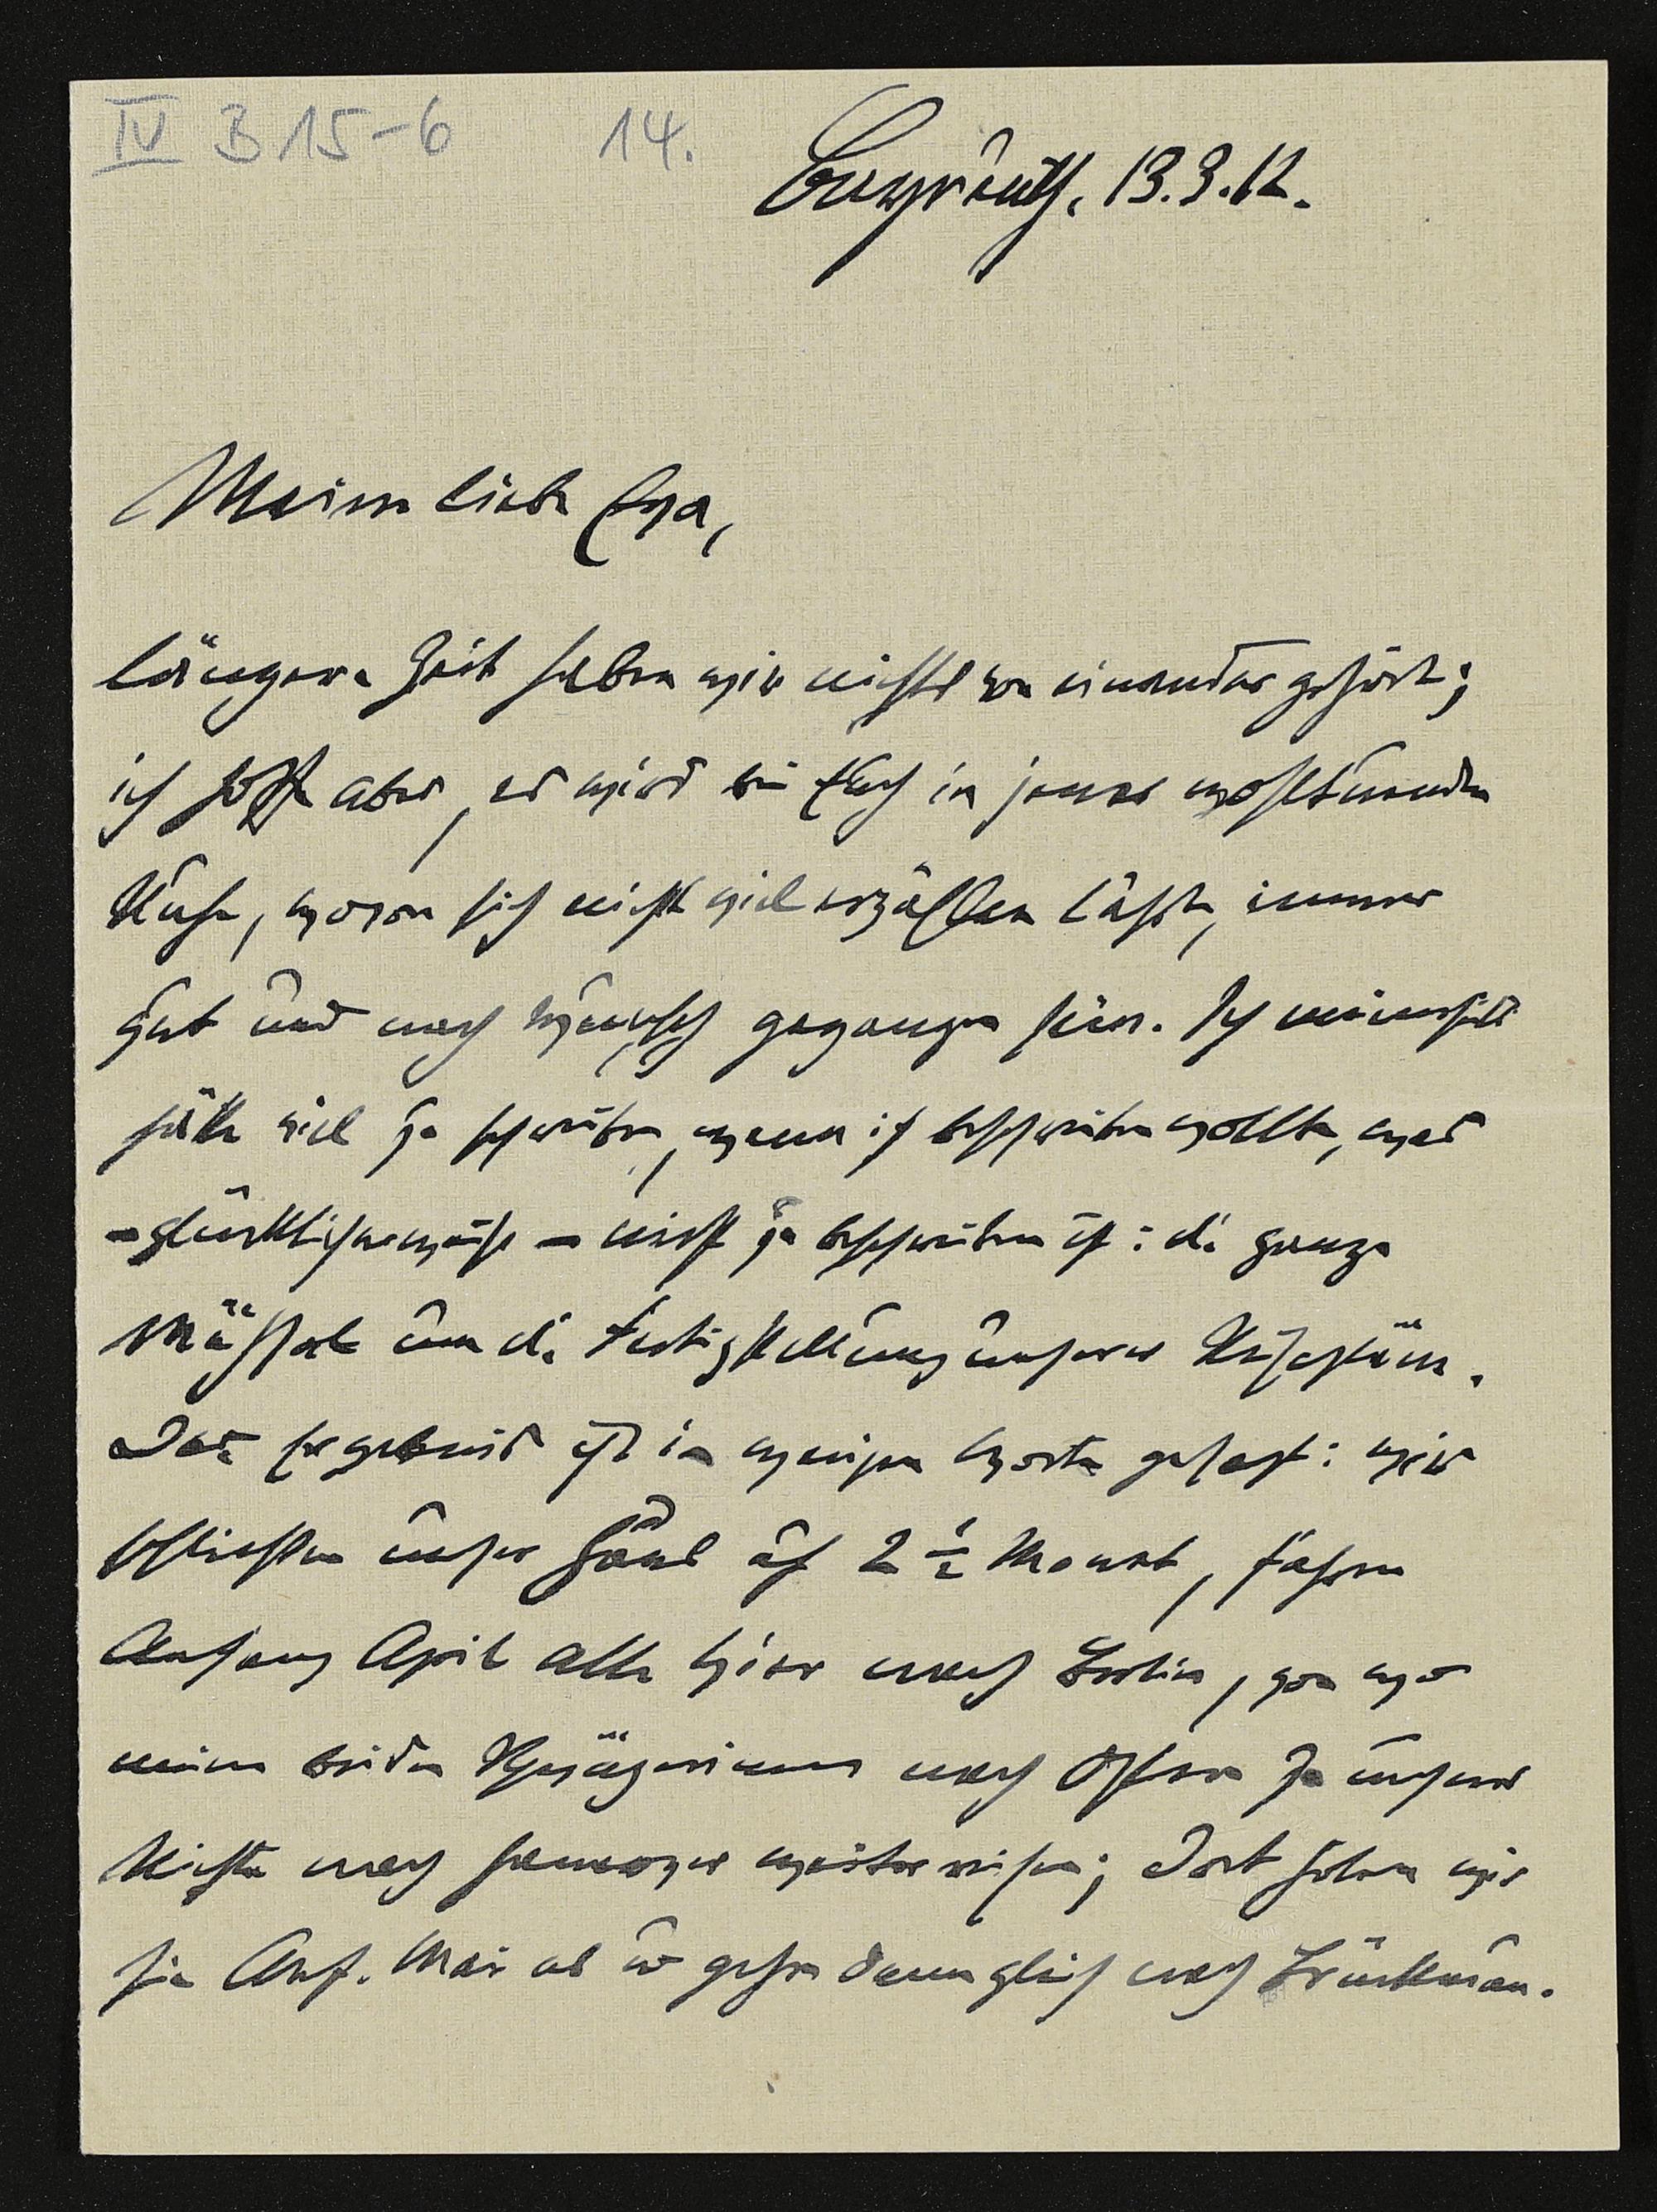 IV B 15-6 14.
Bayreuth, 13.3.12.
Meine liebe Eva,
längere Zeit haben wir nichts von einander gehört;
ich hoffe aber, es wird bei Euch in jener wohltuenden
Ruhe, wovon sich nicht viel erzählen lässt, immer
gut und nach Wunsch gegangen sein. Ich meinerseits
hätte viel zu schreiben, wenn ich beschreiben wollte, was
- glücklicherweise - nicht zu beschreiben ist: die ganze
Mühsal um die Fertigstellung unserer
Das Ergebnis ist in wenigen Worten gesagt: wir
schliessen unser Haus auf 2 1/2 Monat, fahren
Anfang April alle vier nach Berlin, von wo
meine beiden nach Ostern zu unserer
Nichte nach Hannover weiter reisen; dort holen wir
sie Anf. Mai ab u gehen dann gleich nach Brückenau.